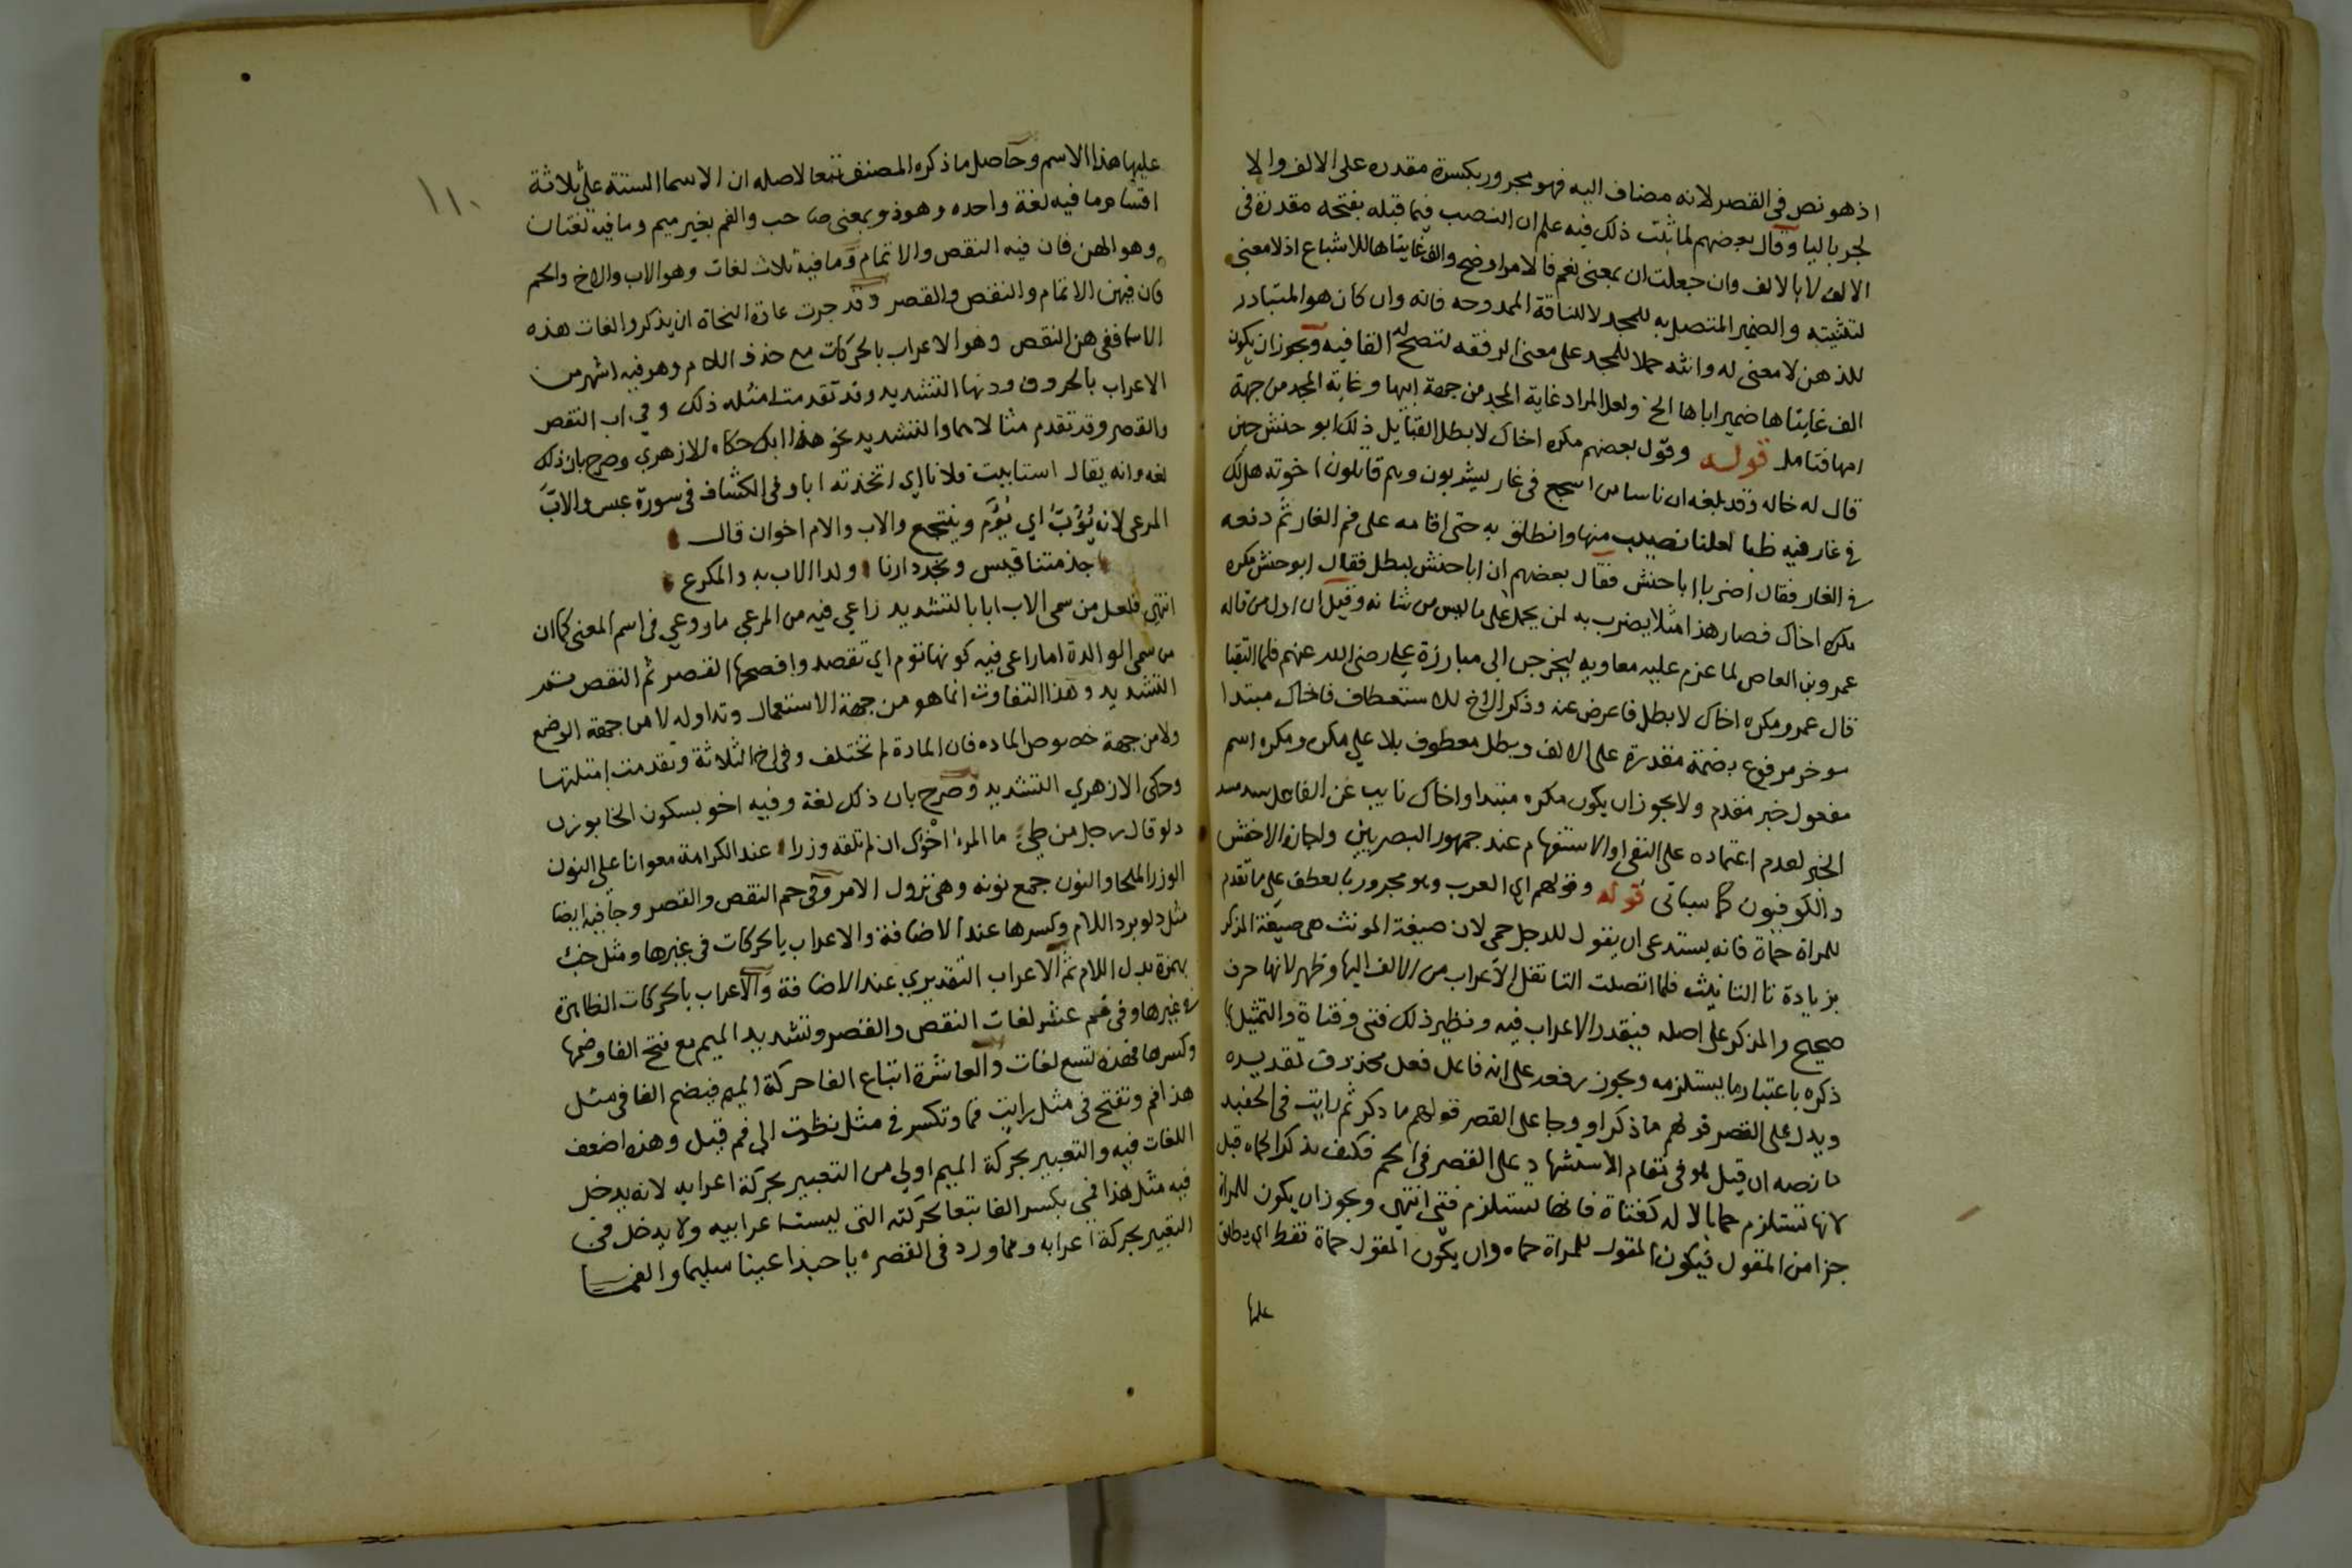 اذ هو نص في القصر لانه مضاف اليه فهو مجرور بكسرة مقدره على الالف والا
لجر باليا وقال بعضهم لما ثبت ذلك فيه علم ان النصب فيما قبله بفتحه مقدرة في
الالف لا بالالف وان جعلت ان بمعنى نعم فالامر اوضح والف غايتاها للاشباع اذ لا معنى
لتثنيته والضمير المتصل به للمجد لا للناقة الممدوحه فانه وان كان هو المتبادر
للذهن لا معنى له وانثه حملا للمجد على معنى الرفقه لتصح له القافيه ويجوز ان يكون
الف غايتاها ضمير اباها الخ ولعل المراد غاية المجد من جهة ابيها وغاية المجد من جهة
امها فتامل قوله وقول بعضهم مكره اخاك لا بطل القايل ذلك ابو حنش حين
قال له خاله وقد بلغه ان ناسا من اشجع في غار يشربون وهم قاتلون اخوته هل لك
في غار فيه ظبا لعلنا نصيب منها وانطلق به حتى اقامه على فم الغار ثم دفعه
في الغار فقال اضربا اباحنش فقال بعضهم ان اباحنش لبطل فقال ابو حنش مكره
مكره اخاك فصار هذا مثلا يضرب به لمن يحمل على ما ليس من شانه وقيل ان اول من قاله
عمرو بن العاص لما عزم عليه معاويه ليخرجن الى مبارزة علي رضى الله عنهم فلما التقيا
قال عمرو مكره اخاك لا بطل فاعرض عنه وذكر الاخ للاستعطاف فاخاك مبتدا
موخر مرفوع بضمة مقدرة على الالف وبطل معطوف بلا على مكره ومكره اسم
مفعول خبر مقدم ولا يجوز ان يكون مكره مبتدا واخاك نايب عن الفاعل سد مسد
الخبر لعدم اعتماده على النفى او الاستفهام عند جمهور البصريين واجازه الاخفش
والكوفيون كما سياتى قوله وقولهم اي العرب وهو مجرور بالعطف على ما تقدم
للمراة حماة فانه يستدعى ان يقول للرجل حمى لان صيغة المونث هى صيغة المذكر
بزيادة تا التانيث فلما اتصلت التا نقل الاعراب من الالف اليها وظهر لانها حرف
صحيح والمذكر على اصله فيقدر الاعراب فيه ونظير ذلك فتى وفتاة والتمثيل بما
ذكره باعتبار ما يستلزمه ويجوز رفعه على انه فاعل فعل محذوف تقديره
ويدل على القصر قولهم ما ذكر او وجا على القصر قولهم ما ذكر ثم رايت في الحفيد
ما نصه ان قيل هو في مقام الاستشهاد على القصر في الحم فكيف يذكر الحماه قيل
لانها تستلزم حما بالاله كفتاة فانها تستلزم فتى انتهى ويجوز ان يكون للمراة
جزا من المقول فيكون المقول للمراة حماه وان يكون المقول حماة فقط اي يطلق
عليها
١١٠
عليها هذا الاسم وحاصل ما ذكره المصنف تبعا لاصله ان الاسما الستة على ثلاثة
اقسام ما فيه لغة واحده وهو ذو بمعنى صاحب والفم بغير ميم وما فيه لغتان
وهو الهن فان فيه النقص والاتمام وما فيه ثلاث لغات وهو الاب والاخ والحم
فان فيهن الاتمام والنقص والقصر وقد جرت عادة النحاة ان يذكروا لغات هذه
الاسما ففى هن النقص وهو الاعراب بالحركات مع حذف اللام وهو فيه اشهر من
الاعراب بالحروف ودنها التشديد وقد تقدمت امثله ذلك وفي اب النقص
والقصر وقد تقدم مثالاهما والتشديد نحو هذا ابك حكاه الازهري وصرح بان ذلك
لغه وانه يقال استابيت فلانا اي اتخذته ابا وفى الكشاف في سورة عبس والاب
المرعى لانه يُؤَبّ اي يُؤَم وينتجع والاب والام اخوان قال
جذمنا قيس ونجد دارنا ولنا الاب به والمكرع
انتهى فلعل من سمى الاب ابا بالتشديد راعي فيه من المرعي ما روعي في اسم المعنى كما ان
من سمى الوالدة اما راعى فيه كونها تؤم اي تقصد وافصحها القصر ثم النقص ثم
التشديد وهذا التفاوت انما هو من جهة الاستعمال وتداوله لا من جهة الوضع
ولا من جهة خصوص الماده فان المادة لم تختلف وفى اخ الثلاثة وتقدمت امثلتها
وحكى الازهري التشديد وصرح بان ذلك لغة وفيه اخو بسكون الخا بوزن
دلو قال رجل من طيئ ما المرء اخوك ان لم تلقه وزرا عند الكرامة معوانا على النون
الوزر الملجا والنون جمع نونه وهى نزول الامر وفى حم النقص والقصر وجا فيه ايضا
مثل دلو برد اللام وكسرها عند الاضافة والاعراب بالحركات في غيرها ومثل خبء
بهمزة بدل اللام ثم الاعراب التقديري عند الاضافة والاعراب بالحركات الظاهرة
في غيرها وفى فم عشر لغات النقص والقصر وتشديد الميم مع فتح الفا وضمها
وكسرها فهذه تسع لغات والعاشرة اتباع الفا حركة الميم فيضم الفا في مثل
هذا فم وتفتح في مثل رايت فما وتكسر في مثل نظرت الى فم قيل وهذه اضعف
اللغات فيه والتعبير بحركة الميم اولى من التعبير بحركة اعرابه لانه يدخل
فيه مثل هذا فمي بكسر الفا تبعا لحركته التى ليست اعرابيه ولا يدخل في
التعبير بحركة اعرابه ومما ورد في القصر يا حبذا عينا سليما والفما